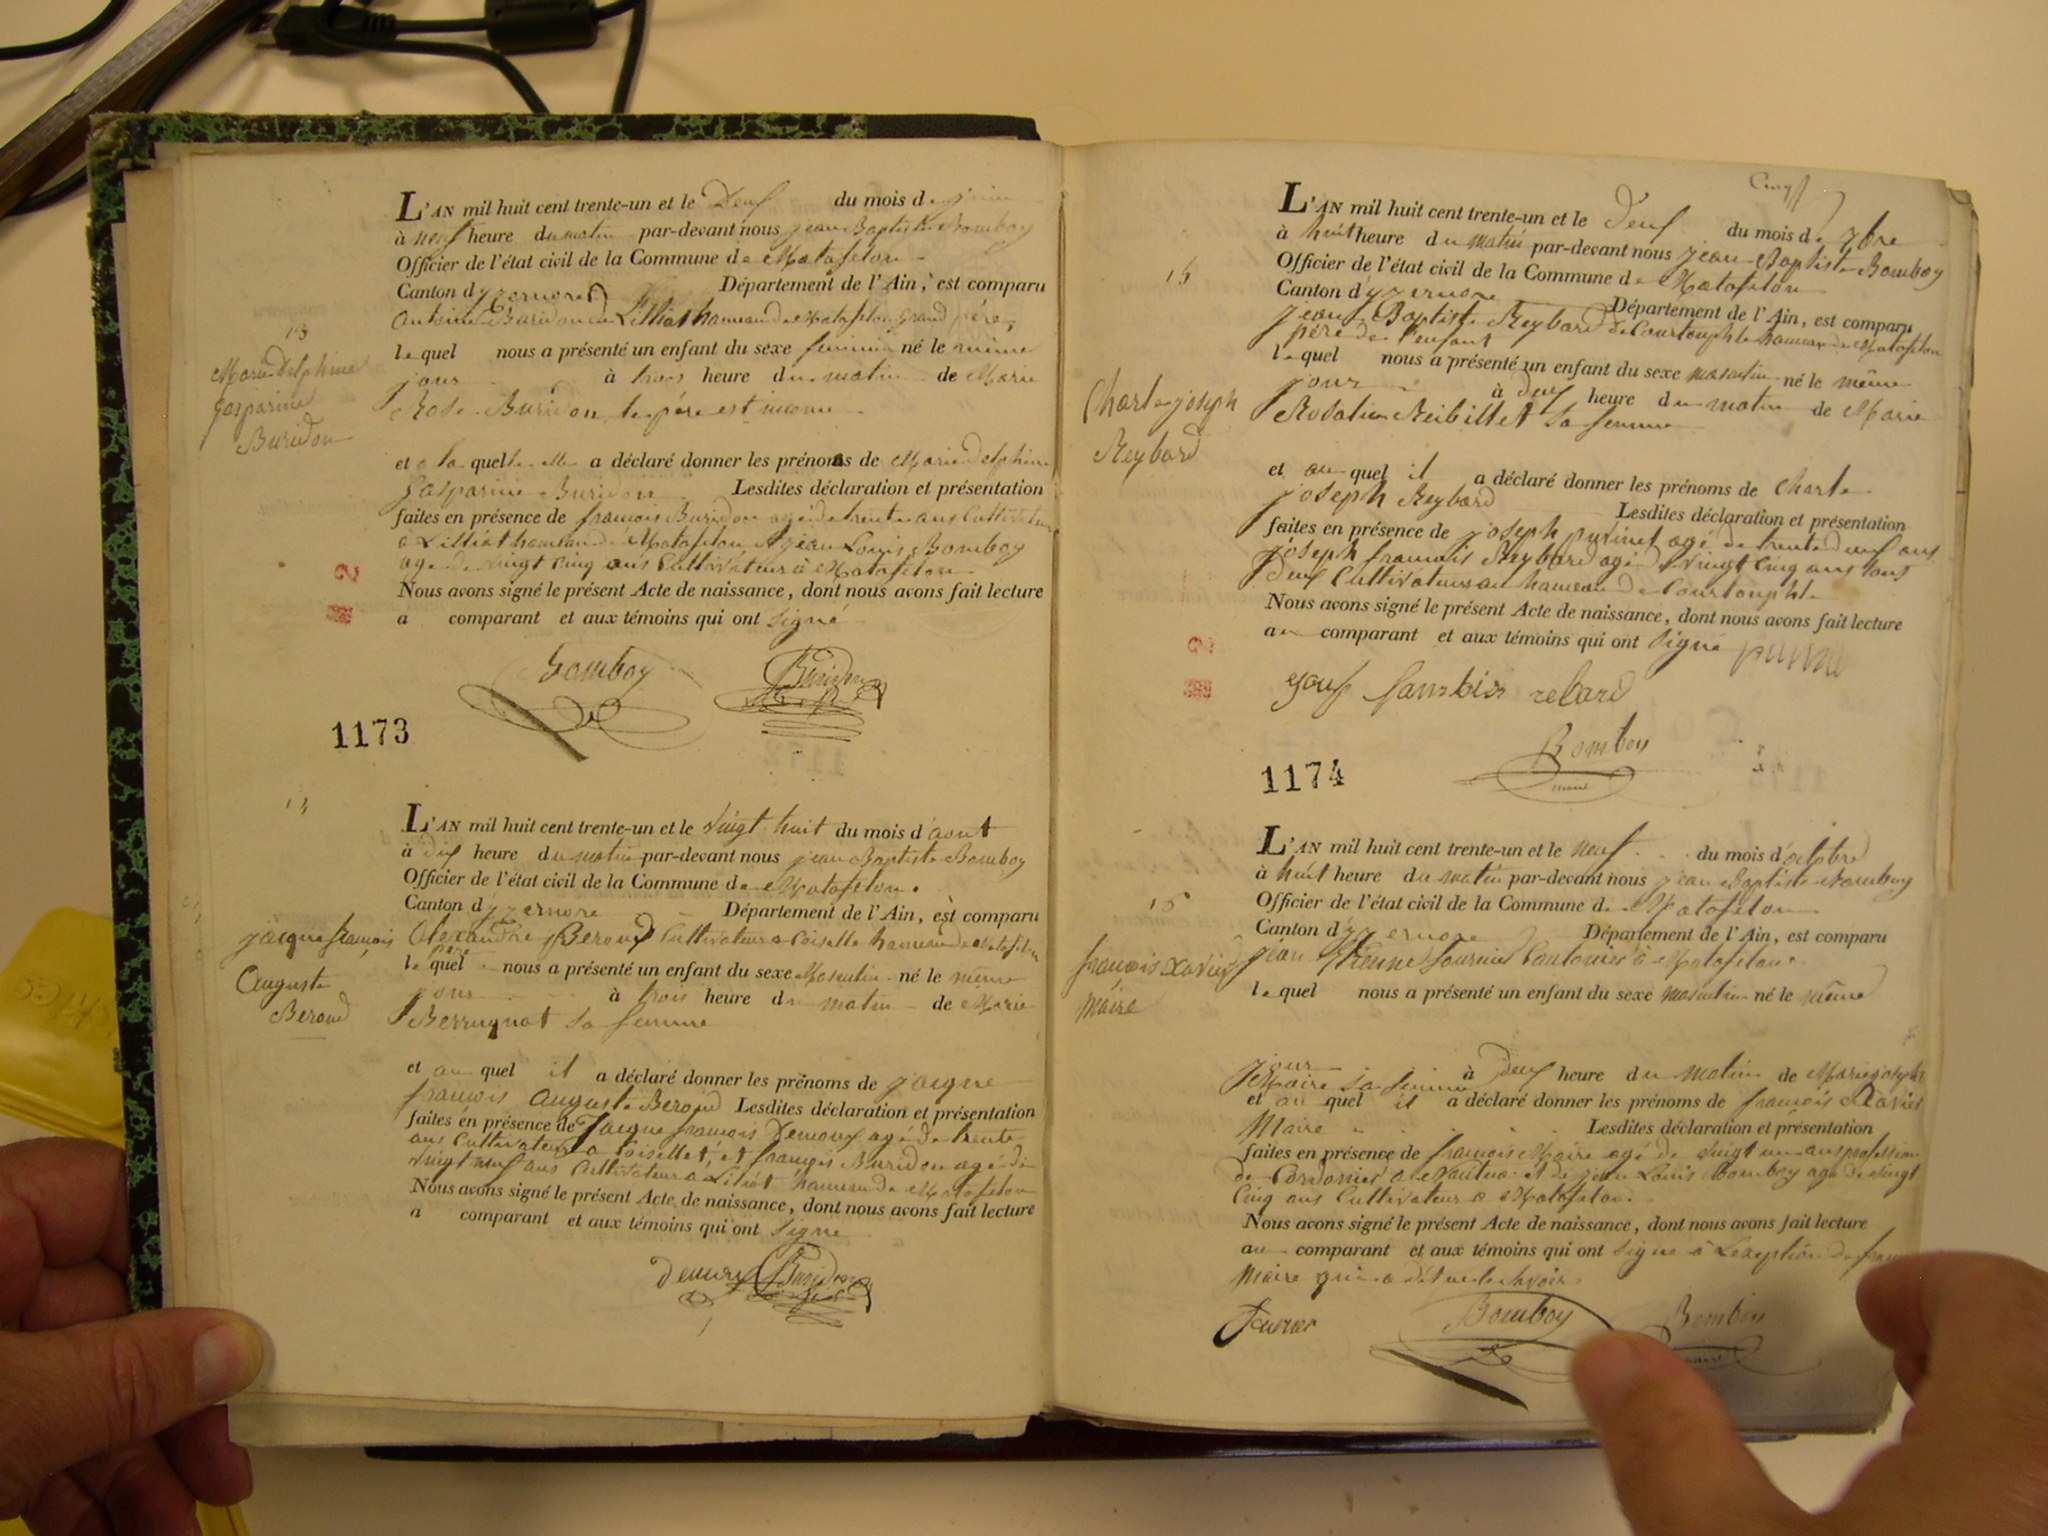 L'AN mil huit cent trente-un et le Deux du mois de
à neuf heure du matin par-devant nous jean Baptiste Bomboy
Officier de l'état civil de la Commune de Matafelon
Canton d'yzernore Département de l'Ain, est comparu
Antoine Buridon de Lilliat hameau de Matafelon grand père,
13
Marie Delphine
gasparine
Buridon
lequel nous a présenté un enfant du sexe feminin né le même
jour à trois heure du matin de Marie
Rose Buridon le père est inconnu
et a la quelle elle a déclaré donner les prénoms de Marie Delphine
gasparine Buridon Lesdites déclaration et présentation
faites en présence de francois Buridon agé de trente ans Cultivateur
a Lilliat hameau de Matafelon et jean Louis Bomboy
age de vingt cinq ans Cultivateur à Matafelon
Nous avons signé le présent Acte de naissance, dont nous avons fait lecture
a comparant et aux témoins qui ont signé
Bomboy Buridon
1173
14
L'AN mil huit cent trente-un et le vingt huit du mois d'aout
à dix heure du matin par-devant nous jean Baptiste Bomboy
Officier de l'état civil de la Commune de Matafelon.
Canton d'yzernore Département de l'Ain, est comparu
jacque francois
Auguste
Beroud
Alexandre Beroud Cultivateur a Coiselle hameau de Matafelon
père
lequel nous a présenté un enfant du sexe Masculin né le même
jour à trois heure du matin de Marie
sa femme
et au quel il a déclaré donner les prénoms de jacque
francois Auguste Beroud Lesdites déclaration et présentation
faites en présence de Jacque francois Demoux agé de trente
ans Cultivateur a Coisellet, et françois Buridon agé de
vingt neuf ans Cultivateur a Liliat hameau de Matafelon
Nous avons signé le présent Acte de naissance, dont nous avons fait lecture
a comparant et aux témoins qui ont signe
Buridon
L'AN mil huit cent trente-un et le Deux du mois de 7bre
à huit heure du matin par-devant nous jean Baptiste Bomboy
Officier de l'état civil de la Commune de Matafelon
Canton d'yzernore Département de l'Ain, est comparu
15
jean Baptiste Reybard de Courtouphle hameau de Matafelon
père de l'enfant
lequel nous a présenté un enfant du sexe masculin né le même
jour à deux heure du matin de Marie
Rosalie Reibillet sa femme
Charle joseph
Reybard
et au quel il a déclaré donner les prénoms de Charle
joseph Reybard Lesdites déclaration et présentation
faites en présence de joseph agé de trente deux ans
joseph francois Reybard agé de vingt cinq ans tous
deux Cultivateurs au hameau de Courtouphle
Nous avons signé le présent Acte de naissance, dont nous avons fait lecture
au comparant et aux témoins qui ont signé
Bomboy
maire
1174
L'AN mil huit cent trente-un et le neuf du mois d'octobre
à huit heure du matin par-devant nous jean Baptiste Bomboy
Officier de l'état civil de la Commune de Matafelon
Canton d'yzernore Département de l'Ain, est comparu
francois Xavier
Maire
jean Etienne fournier Cantonier à Matafelon
lequel nous a présenté un enfant du sexe masculin né le même
jour à deux heure du matin de Marie joseph
Maire sa femme
et au quel il a déclaré donner les prénoms de francois Xavier
Maire Lesdites déclaration et présentation
faites en présence de francois Maire agé de vingt un ans profession
de Cordonier a Nantua et de jean Louis Bomboy agé de vingt
Cinq ans Cultivateur a Matafelon.
Nous avons signé le présent Acte de naissance, dont nous avons fait lecture
au comparant et aux témoins qui ont signe à L'exeption de
Maire qui a dit ne le savoir
Bomboy